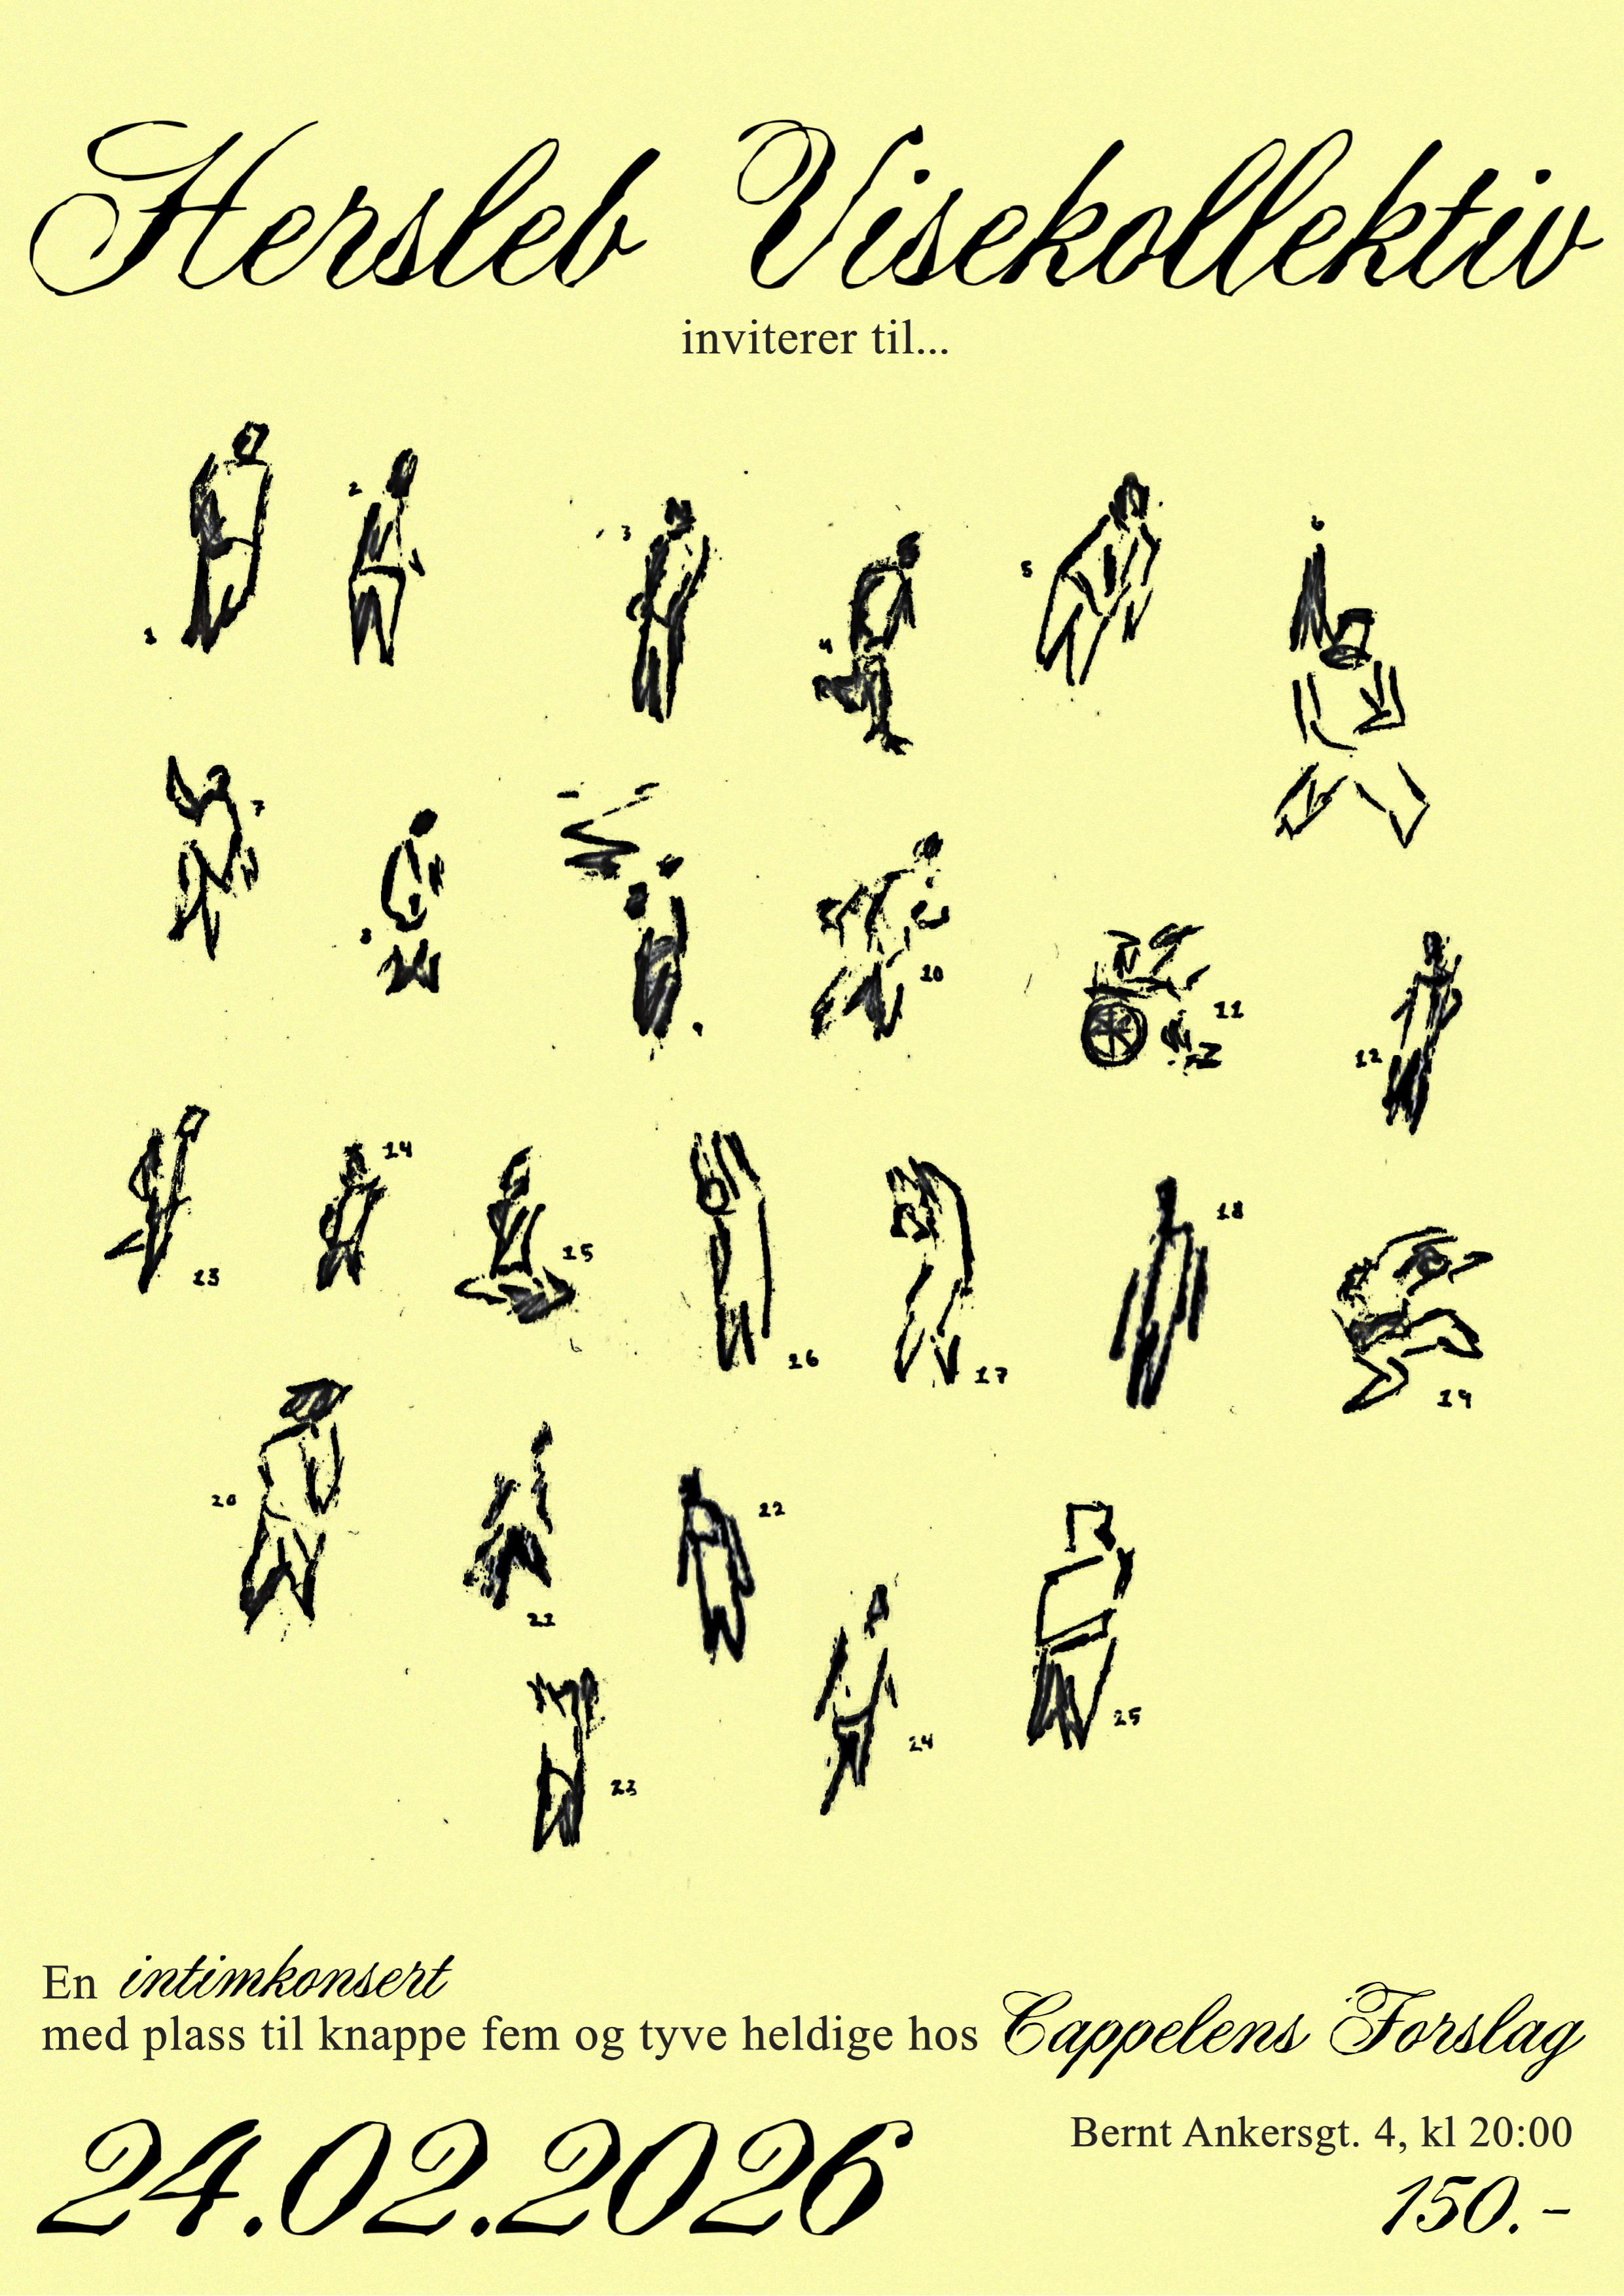 Hersleb Visekollektiv
inviterer til...
1
2
3
4
5
6
7
8
9
10
11
12
13
14
15
16
17
18
19
20
21
22
23
24
25
En intimkonsert
med plass til knappe fem og tyve heldige hos Cappelens Forslag
24.02.2026
Bernt Ankersgt. 4, kl 20:00
150.-